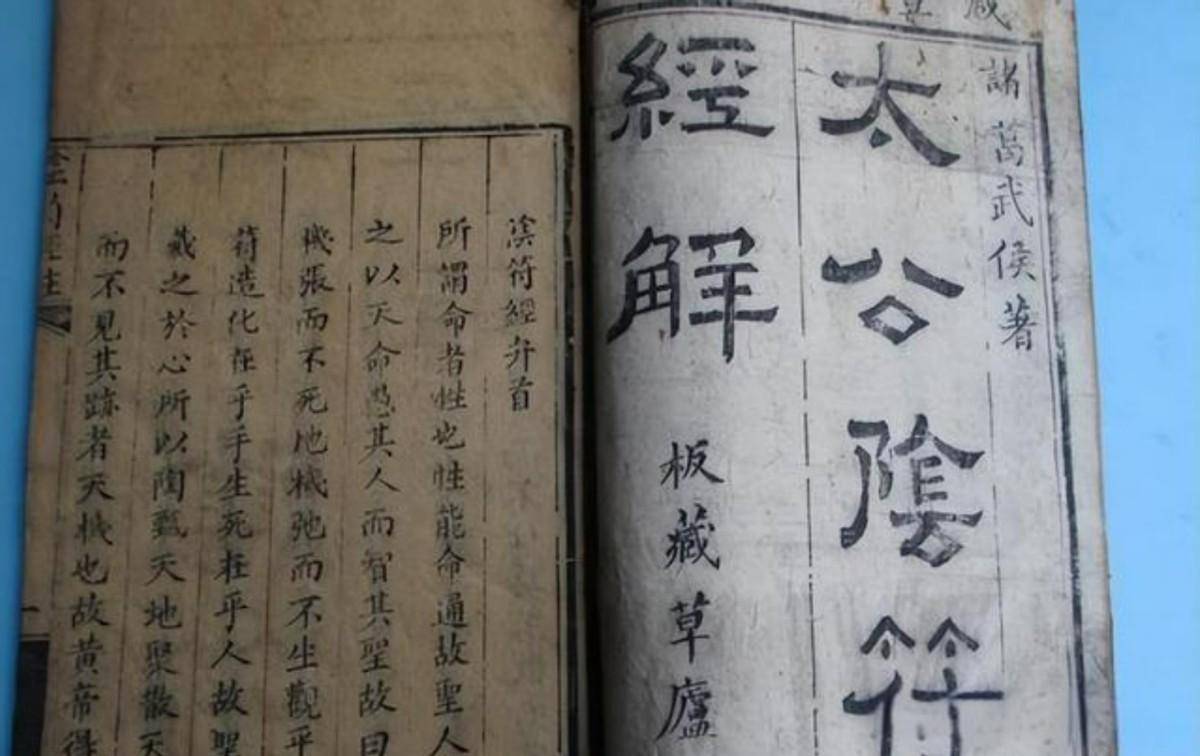 諸葛武侯著
太公陰符
經解
板藏草廬
陰符經弁首
所謂命者性也性能命通故聖人
之以天命愚其人而智其聖故曰
機張而不死地機弛而不生觀乎
符造化在乎手生死在乎人故聖
藏之於心所以陶甄天地聚散天
而不見其跡者天機也故黃帝得